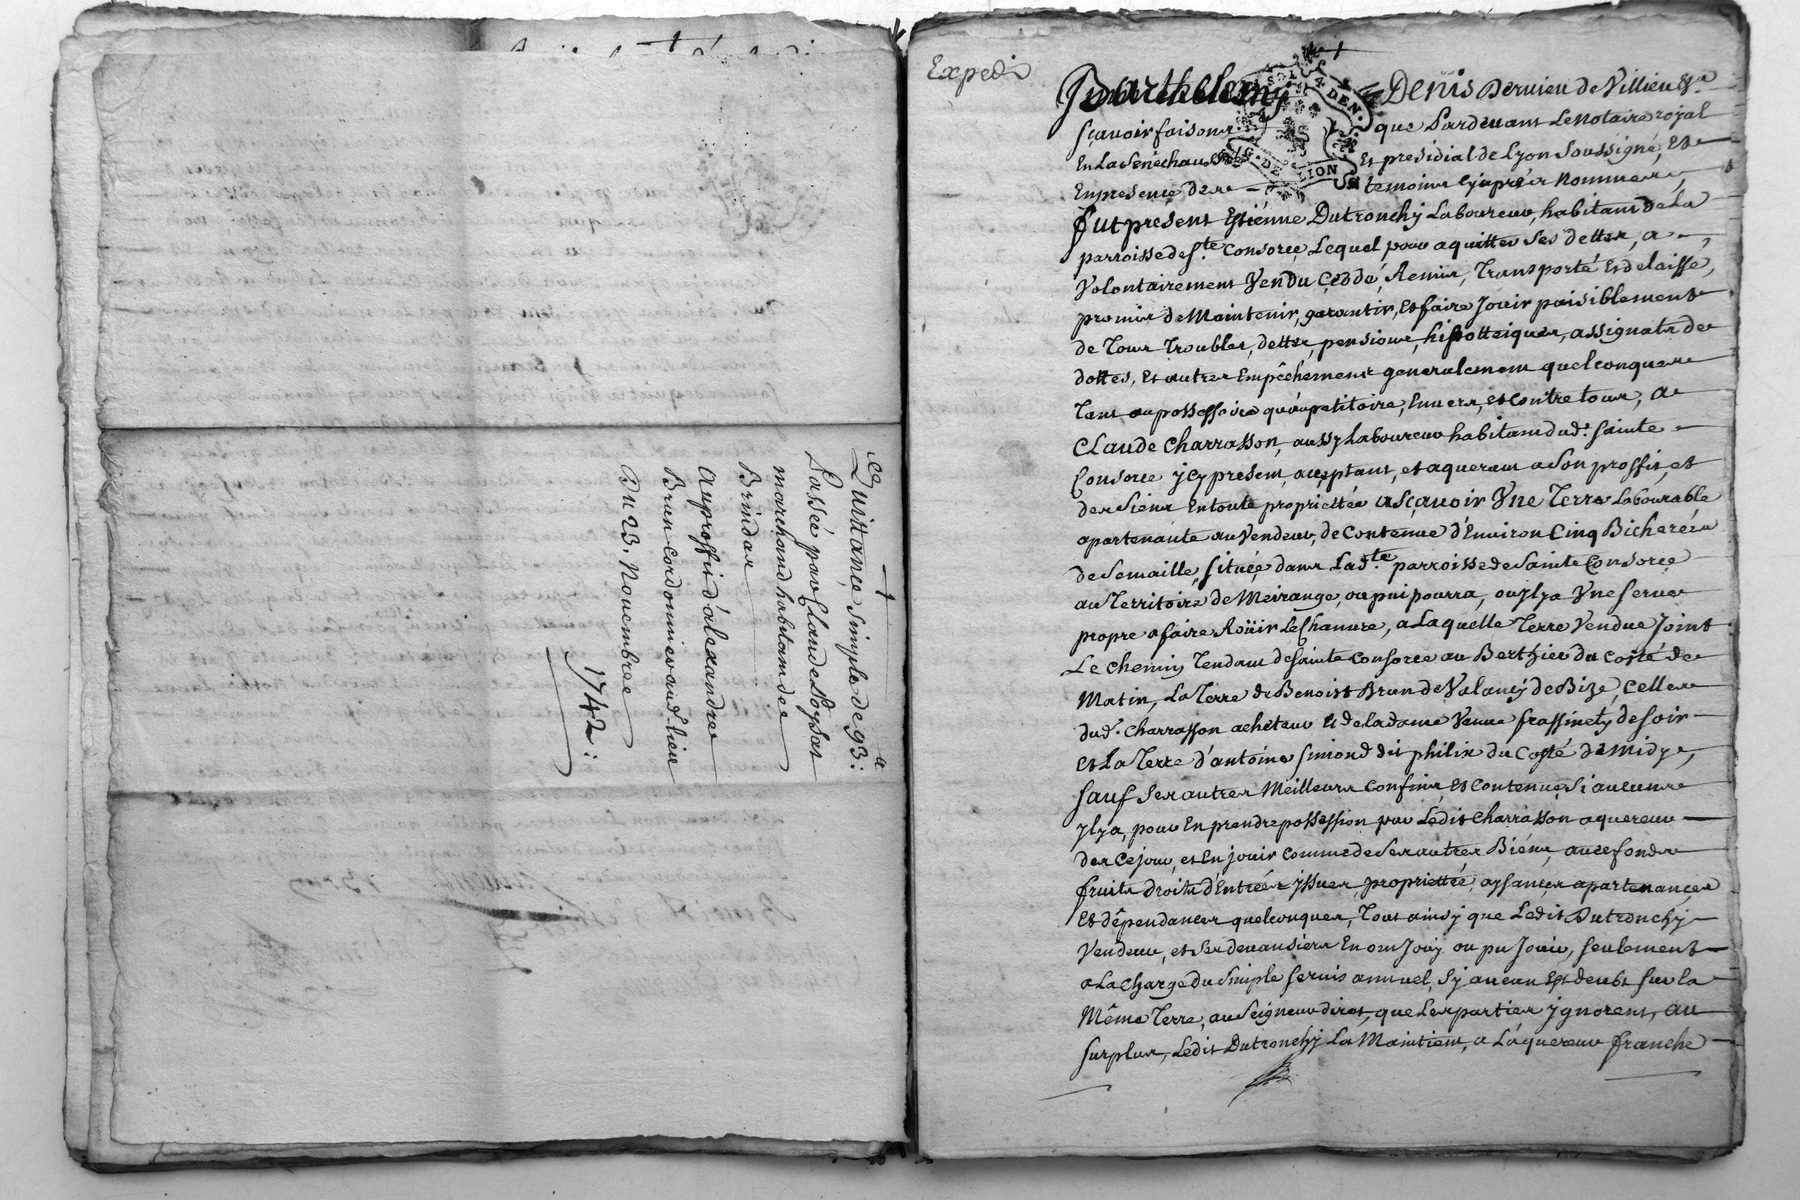 Quittance simple de 93:ᵗᵗ
Passée par Claude Loysat
marchand habitant de
Brindas
Au proffit d'alexandre
Brun cordonnier audit lieu
Du 23. Novembre
1742:
Expedié
Barthelemy Denis Dervieu de Villieu Esr.
sçavoir faisons que Pardevant Le Notaire royal
En La Senechaussée Et presidial de Lyon Soussigné, Et
En presence des temoins cy aprés Nommes,
fut present Estienne Dutronchy Laboureur, habitant de La
parroisse de Ste. Consorce Lequel pour aquitter Ses dettes, a
Volontairement Vendu, Ceddé, Remis, Transporté Et delaissé,
promis de Maintenir, garantir, Et faire Jouir paisiblement
de Tous Troubles, dettes, pensions, hipotteiques, assignats de
dottes, Et autres Empêchements generalement quelconques
Tant au possessoire qu'au petitoire, Envers, et Contre tous, A
CLaude Charrasson, aussy Laboureur habitant dud. Sainte
Consorce ycy present, acceptant, et aquerant a Son proffit, et
des Siens En toute proprietée ascavoir Vne Terre Labourable
apartenante au Vendeur, de Contenue d'Environ Cinq Bicherées
de Semaille, Située dans Lad.te parroisse de Sainte Consorce
au Territoire de Meirange, ou puipourra, ou Jl ya Vne Serve
propre a faire Roüir Le Chanvre, a Laquelle Terre Vendue Joint
Le chemin Tendant de Sainte Consorce au Berthier du costé de
Matin, La Terre de Benoist Brun de Valancy de Bize, Celles
dud. Charrasson acheteur Et de la dame Veuve frassinety de Soir
et La Terre d'antoine Simond dit philix du Costé de midy,
Sauf Ses autres Meilleurs Confins, Et Contenues Si aucuns
Jl ya, pour En prendre possession par Ledit Charrasson aquereur
des Ce jour, et En jouir Comme de Ses autres Biens, avec fonds
fruits droits d'Entrées yssues, proprietée, aysances apartenances
Et dêpendances quelconques, Tout ainsy que Ledit Dutronchy
Vendeur, et Ses devansiers En ont Jouy ou pu Jouir, Seulement
a La Charge du Simple Servis annuel, Sy aucun Est deubt Sur la
Même Terre, au Seigneur direct, que Les parties Jgnorent, au
Surplus, Ledit Dutronchy La Maintient, a L'aquereur franche